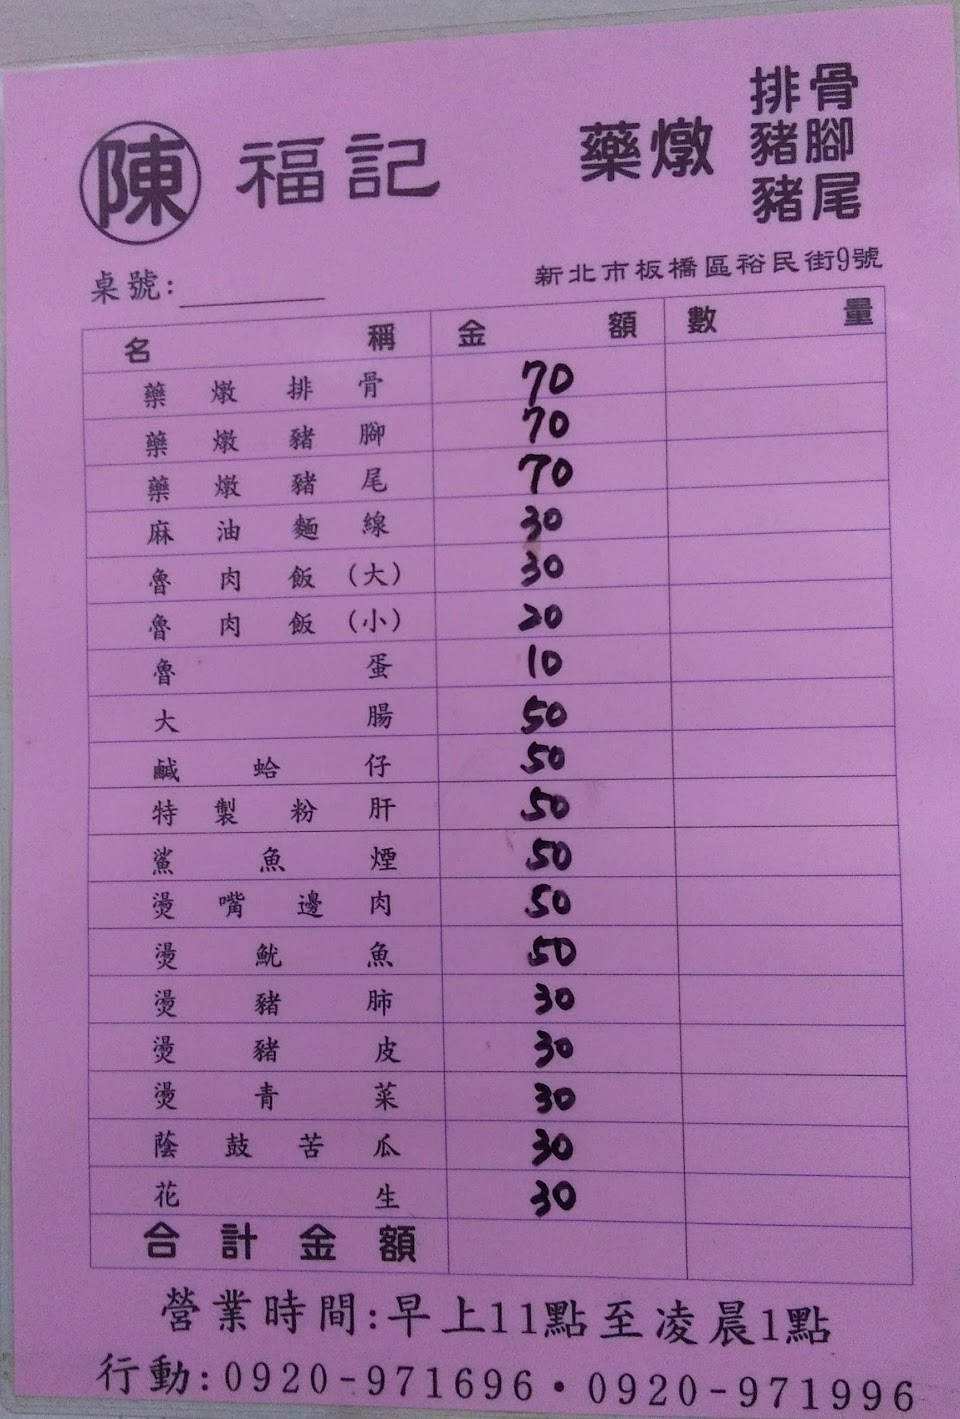 陳 福記 藥燉 排骨 豬腳 豬尾
新北市板橋區裕民街9號
桌號:
名稱 金額 數量
藥燉排骨 70
藥燉豬腳 70
藥燉豬尾 70
麻油麵線 30
魯肉飯(大) 30
魯肉飯(小) 20
魯蛋 10
大腸 50
鹹蛤仔 50
特製粉肝 50
鯊魚煙 50
燙嘴邊肉 50
燙魷魚 50
燙豬肺 30
燙豬皮 30
燙青菜 30
蔭鼓苦瓜 30
花生 30
合計金額
營業時間:早上11點至凌晨1點
行動:0920-971696・0920-971996